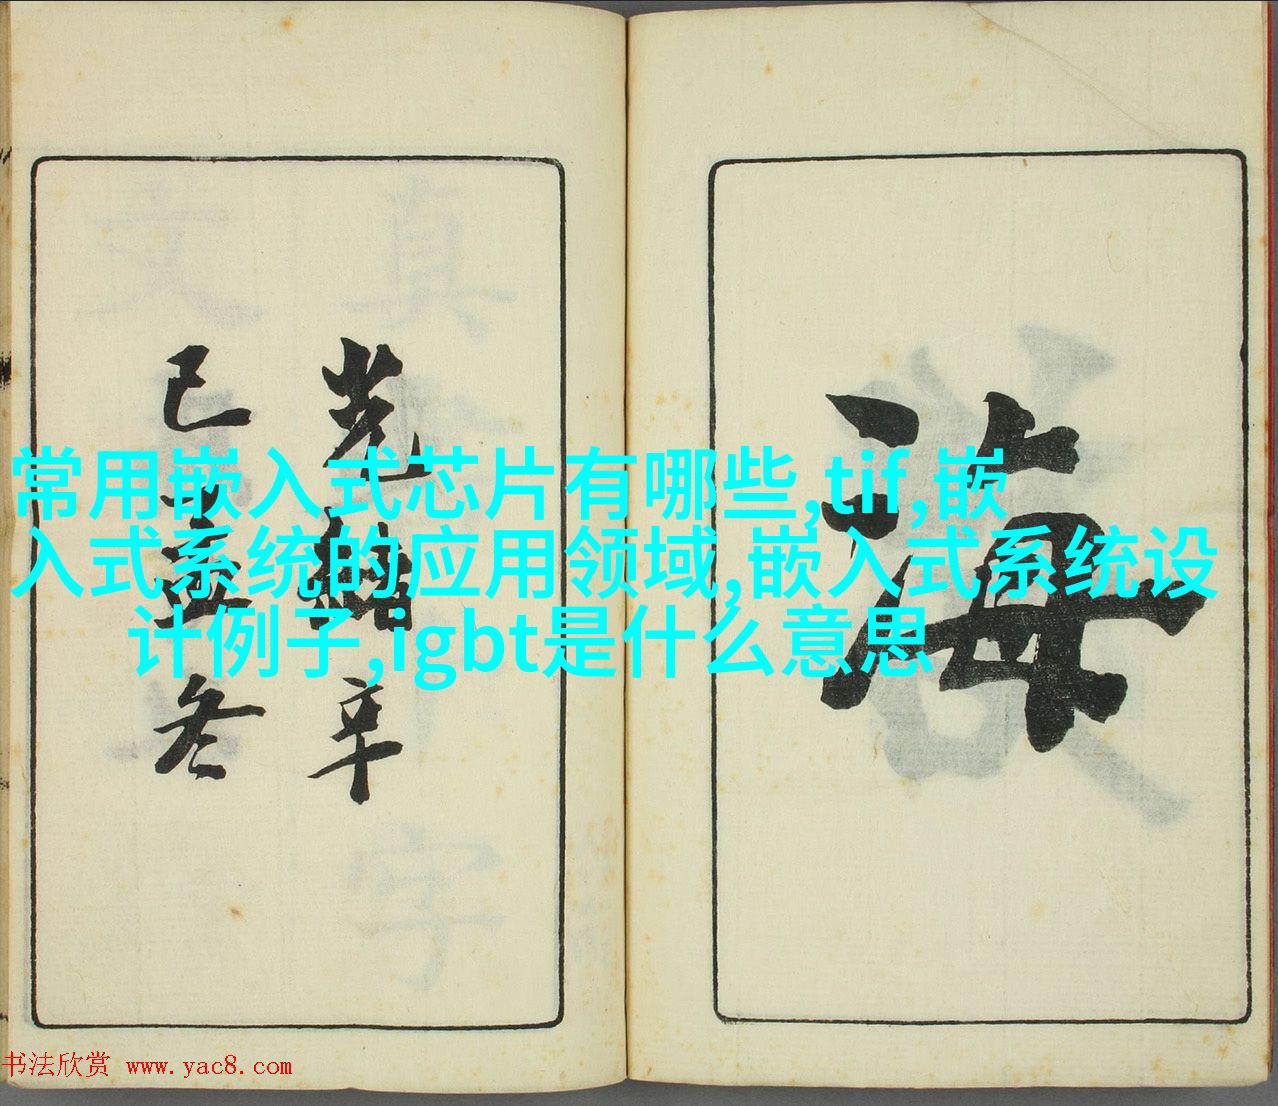 常用嵌入式芯片有哪些,tif,嵌
入式系统的应用领域,嵌入式系统设
计例子,igbt是什么意思
海
光緒辛
巳孟冬
书法欣赏 www.yac8.com